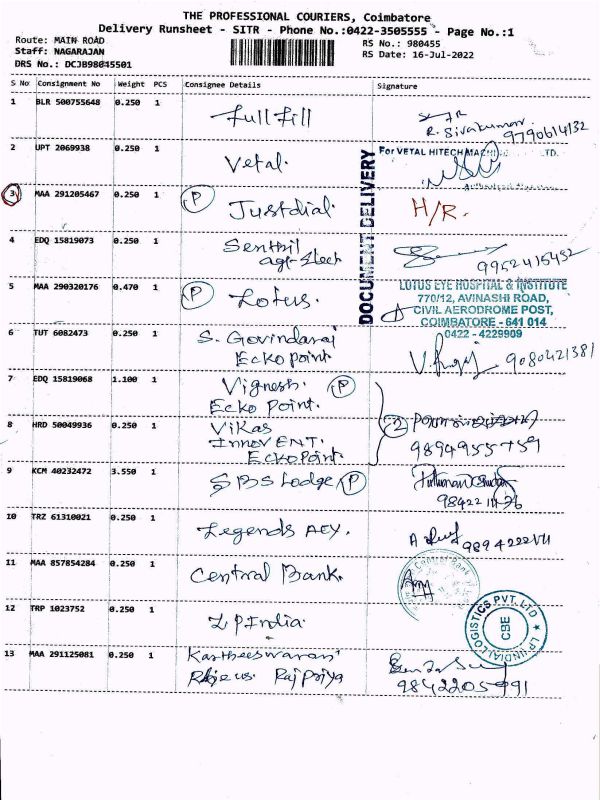 THE PROFESSIONAL COURIERS, Coimbatore
Delivery Runsheet - SITR - Phone No.:0422-3505555 - Page No.:1
Route: MAIN ROAD
Staff: NAGARAJAN
DRS No.: DCJB98045501
RS No.: 980455
RS Date: 16-Jul-2022
S No Consignment No Weight PCS Consignee Details Signature
1 BLR 500755648 0.250 1 Full Fill
R. Sivakumar 9790614132
2 UPT 2069938 0.250 1 Vetal. For VETAL HITECH LTD.
DOCUMENT DELIVERY
3 MAA 291205467 0.250 1 P Justdial H/R.
4 EDQ 15819073 0.250 1 Senthil
9952415452
5 MAA 290320176 0.470 1 P Lotus.
LOTUS EYE HOSPITAL & INSTITUTE
770/12, AVINASHI ROAD,
CIVIL AERODROME POST,
COIMBATORE - 641 014
0422 - 4229909
6 TUT 6082473 0.250 1 S. Govindaraj
Ecko point 9080421381
7 EDQ 15819068 1.100 1 Vignesh. P
Ecko Point.
8 HRD 50049936 0.250 1 Vikas
InnovENT.
Ecko Point
2
9894955759
9 KCM 40232472 3.550 1 SBS Lodge P
10 TRZ 61310021 0.250 1 Legends
11 MAA 857854284 0.250 1 Central Bank.
12 TRP 1023752 0.250 1 LP India
LP (INDIA) LOGISTICS PVT. LTD
CBE
13 MAA 291125081 0.250 1 Kartheeswaran
Raj priya